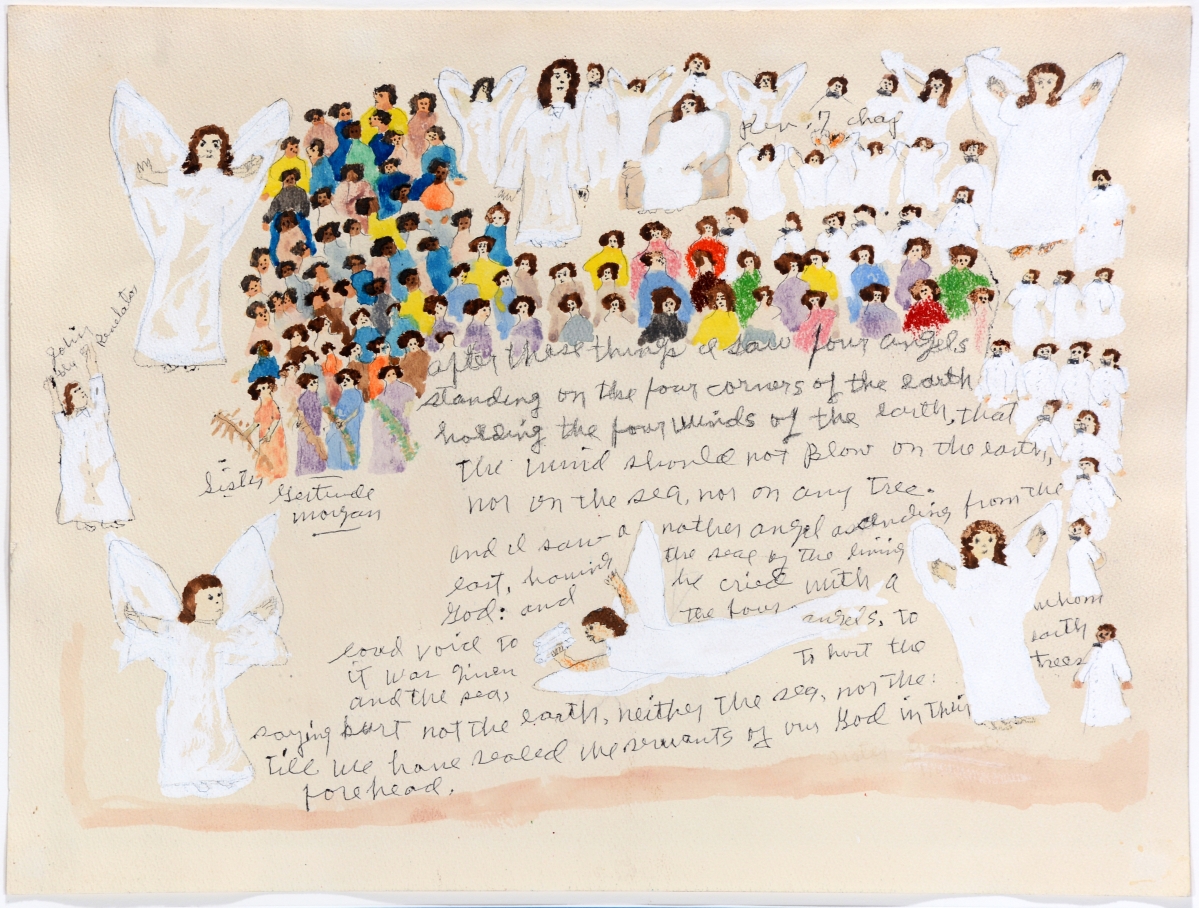 Rev. 7 chap
John
Revelator
after these things I saw four angels
standing on the four corners of the earth
holding the four winds of the earth, that
the wind should not Blow on the earth,
nor on the sea, nor on any tree.
Sister
Gertrude
morgan
and I saw a nother angel ascending from the
east, having the seal of the living
God: and he cried with a
loud voice to the four angels, to whom
it was given To hurt the earth
and the sea, trees
saying hurt not the earth, neither the sea, nor the:
till we have sealed the servants of our God in their
forehead.